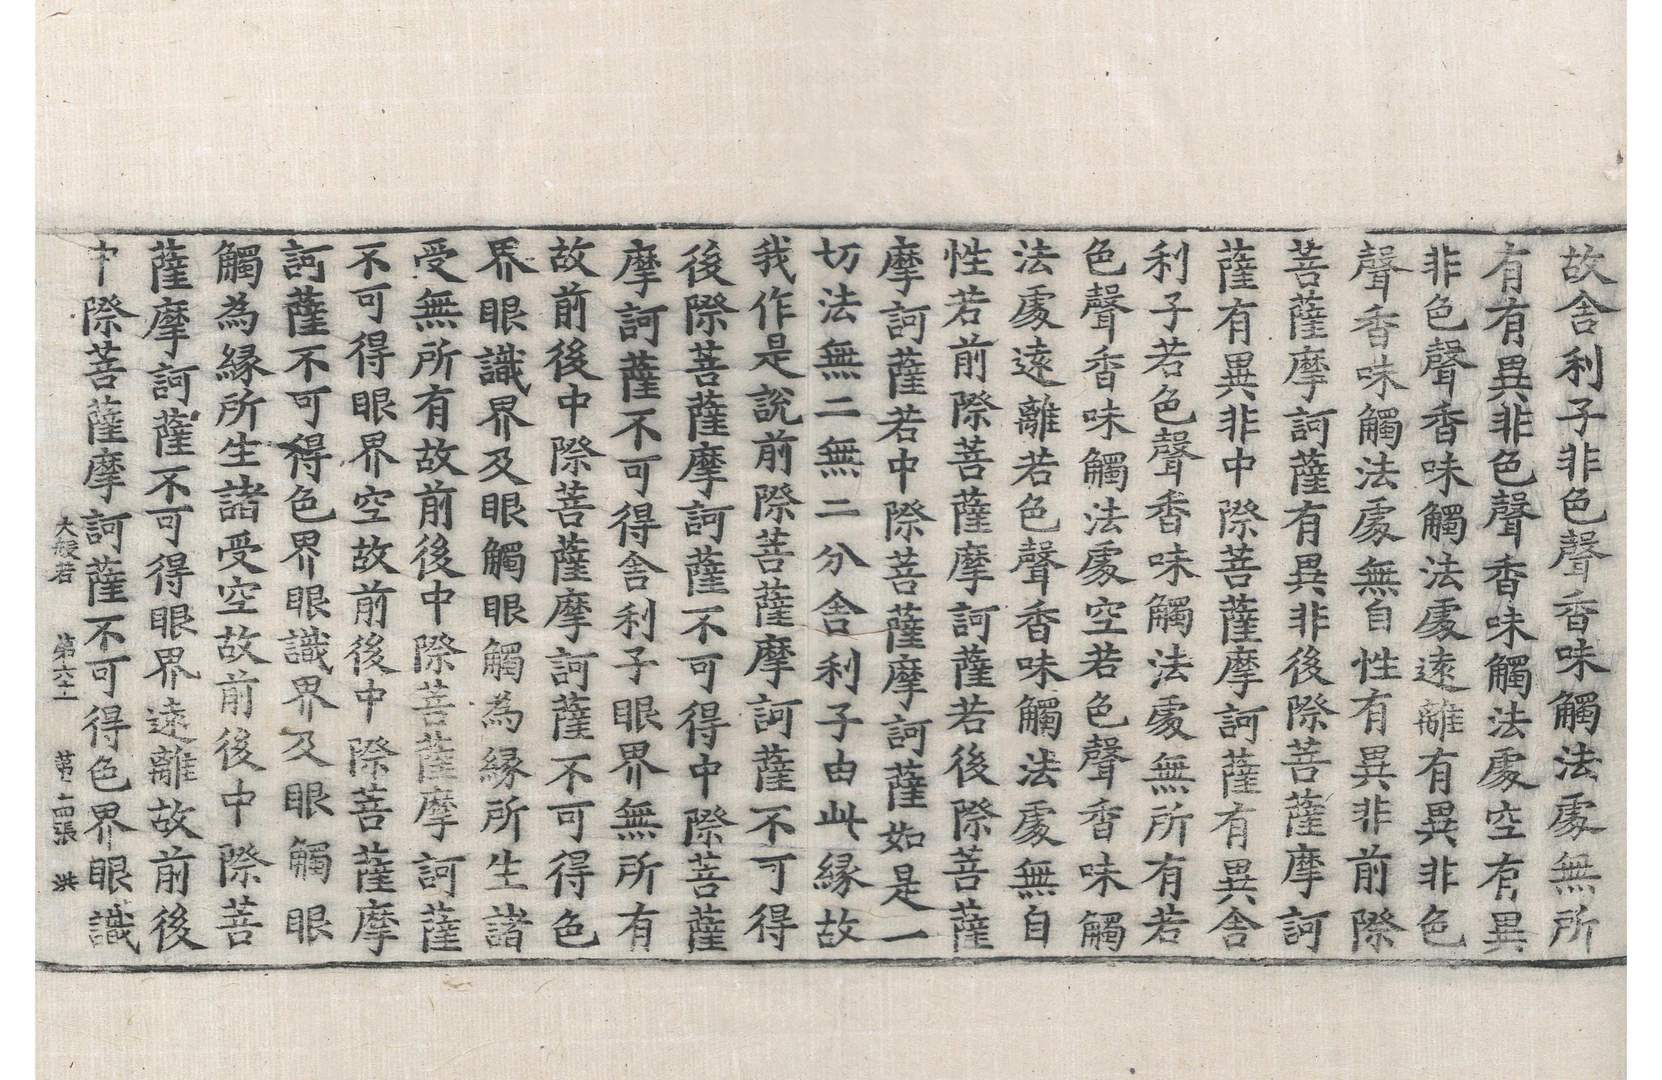 故舍利子非色聲香味觸法處無所
有有異非色聲香味觸法處空有異
非色聲香味觸法處遠離有異非色
聲香味觸法處無自性有異非前際
菩薩摩訶薩有異非後際菩薩摩訶
薩有異非中際菩薩摩訶薩有異舍
利子若色聲香味觸法處無所有若
色聲香味觸法處空若色聲香味觸
法處遠離若色聲香味觸法處無自
性若前際菩薩摩訶薩若後際菩薩
摩訶薩若中際菩薩摩訶薩如是一
切法無二無二分舍利子由此緣故
我作是說前際菩薩摩訶薩不可得
後際菩薩摩訶薩不可得中際菩薩
摩訶薩不可得舍利子眼界無所有
故前後中際菩薩摩訶薩不可得色
界眼識界及眼觸眼觸為緣所生諸
受無所有故前後中際菩薩摩訶薩
不可得眼界空故前後中際菩薩摩
訶薩不可得色界眼識界及眼觸眼
觸為緣所生諸受空故前後中際菩
薩摩訶薩不可得眼界遠離故前後
中際菩薩摩訶薩不可得色界眼識
大般若 第六十一 第 四張 洪